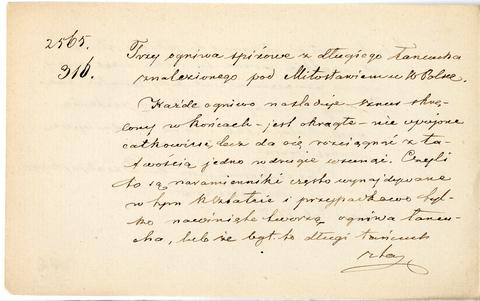 2565.
316.
Trzy ogniwa spiżowe z długiego łańcucha
znalezionego pod Miłosławiem w W Polsce.
Każde ogniwo naśladuje sznur skrę-
cony w końcach - jest okrągłe - nie spojone
całkowicie lecz da się rozciągnąć z ła-
twością jedno w drugie wsunąć. Czyli
to są naramienniki często wynajdywane
w tym kształcie i przypadkowo tyl-
ko nawinięte tworzą ogniwa łańcu-
cha, lub że był to długi łańcuch